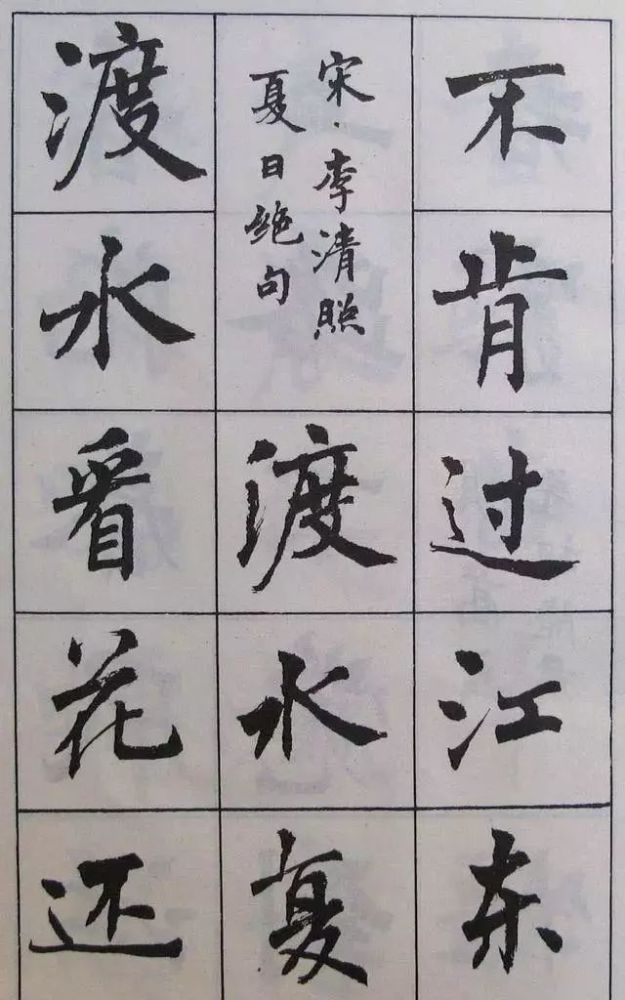 不肯过江东
宋·李清照
夏日绝句
渡水复
渡水看花还